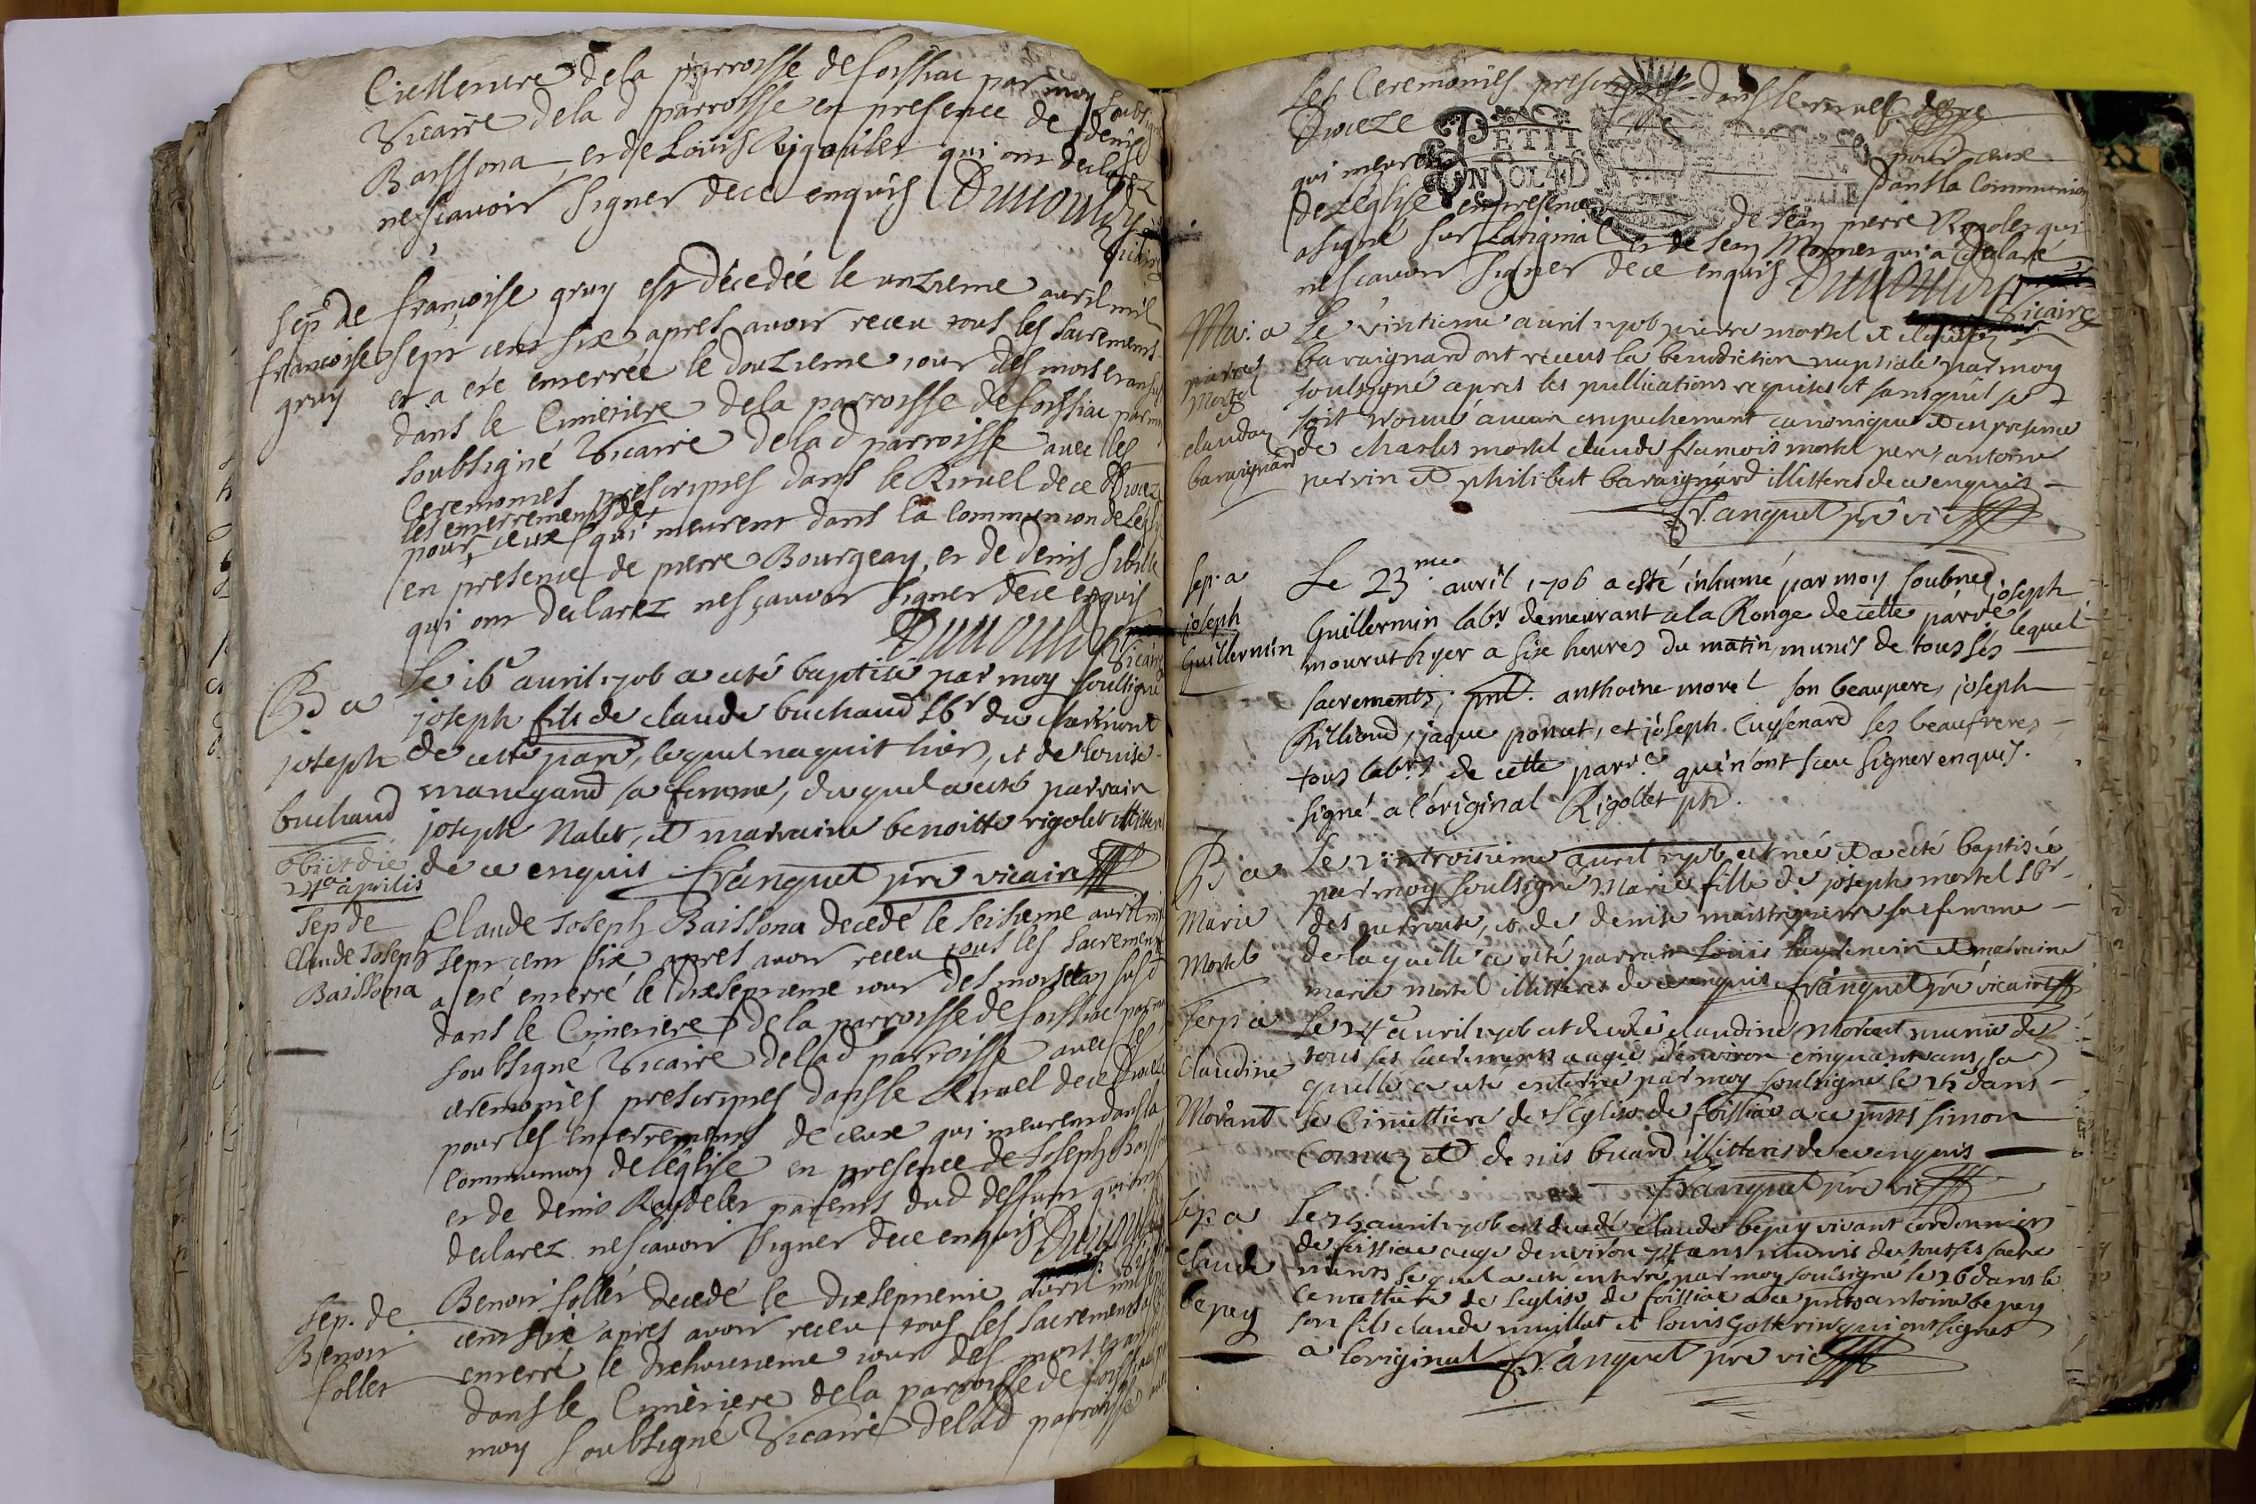 Cimetiere de la parroisse de foissiac par moy soubsig
Vicaire de la d parroisse en presence de denis
Baissona, et de Louis Rigaulet qui ont declarez
ne scavoir signer de ce enquis Dumoulin
Vicaire
Sep de françoise gruy est décedée le unzieme avril mil
francoise sept cent six apres avoir receu tous les sacrements
gruy et a eté enterrée le douzieme jour des mois et an susd
dans le Cimetiere de la parroisse de foissiac par moy
soubsigné Vicaire de la d parroisse avec les
Ceremonies prescriptes dans le Rituel de ce Dioceze
les enterrements de
pour ceux qui meurent dans la communion de Leglise
en presence de pierre Bourgeay, et de denis sibille
qui ont declarez ne sçavoir signer de ce enquis
Dumoulin
Vicaire
B a Le 16e avril 1706 a eté baptisé par moy soulsigné
joseph fils de claude buchaud Lbr du clairmont
joseph de cette parr, lequel naquit hier, et de louise
buchaud marigand sa femme, duquel a eté parrain
joseph Nalet, et marraine benoitte rigolet illitteres
obiit die
24a aprilis
de ce enquis franquet pre vicaire
Sep de Claude Joseph Baissona decedé le seisieme avril mil
Claude Joseph sept cent six apres avoir receu tous les sacrements
Baissona a eté enterré le dixseptieme jour des mois et an susd
dans le Cimetiere de la parroisse de foissiac par moy
soubsigné Vicaire de la d parroisse avec les
ceremonies prescriptes dans le Rituel de ce Dioceze
pour les enterrements de ceux qui meurent dans la
communion de l'église en presence de Joseph Baissona
et de denis Raydelet parents du d deffunt qui ont
declarez ne scavoir signer de ce enquis Dumoulin
Sep. de Benoit sollet decedé le dixseptieme avril mil sept
Benoit cent six apres avoir receu tous les sacrements
sollet enterré le dixhuitieme jour des mois et an susd
dans le Cimetiere de la parroisse de foissiac par
moy soubsigné Vicaire de la d parroisse
Les Ceremonies prescriptes dans le rituel de ce
Dioceze pour ceux
PETIT
EN SOL 4 D
qui meurent dans la Communion
de L'église en presence de Jean pierre Ragolet qui
a signé sur L'original et de Jean Monnet qui a declaré
ne scavoir signer de ce enquis Dumoulin
Vicaire
Ma: a Le vintieme avril 1706 pierre mortel et claudaz
pierre baraignard ont receus la benediction nuptiale par moy
Mortel soulsigné apres les pullications requises et sans qu'il se
claudaz soit trouvé aucun empechement canonique et en presence
baraignard de charles mortel claude francois mortel pere, antoine
perrin et philibert baraignard illitteres de ce enquis
franquet pre vic
Sep. a Le 23me avril 1706 a esté inhumé par moy soubned joseph
joseph Guillermin labr demeurant a la Ronge de cette parre lequel
Guillermin mourut hyer a six heures du matin munis de tous ses
sacrements; pnt. anthoine morel son beaupere, joseph
Rilliond, jaque poncet, et joseph Cuysenard ses beaufreres
tous labrs de cette parre qui n'ont sceu signer enquis.
signé a l'original Rigollet ptre
B a Le vintroisieme avril 1706 est née et a eté baptisée
par moy soulsigné Marie fille de joseph mortel Lbr
Marie des perrouse, et de denise maistrepierre sa femme
Mortel de laquelle a eté parrain Louis laurencin et marraine
marie mortel illitteres de ce enquis franquet pre vicaire
Sep a Le 24e avril 1706 est decedée claudine Morant munie de
Claudine tous ses sacrements augée d'environ cinquant ans, la
quelle a eté enterrée par moy soulsigné le 25 dans
Morant le Cimettiere de l'Eglise de foissiac a ce pnts simon
Cornaz et denis buard illitteres de ce enquis
franquet pre vic
Sep. a Le 25 avril 1706 est decedé claude bepey vivant cordonnier
Claude de foissiac augé denviron 74 ans munis de tout ses sacre
ments lequel a eté enterré par moy soulsigné le 26 dans le
bepey Cemettiere de Leglise de foissiac a ce pnts antoine bepey
son fils claude muillat et louis gotterin qui ont signés
a loriginal franquet pre vic